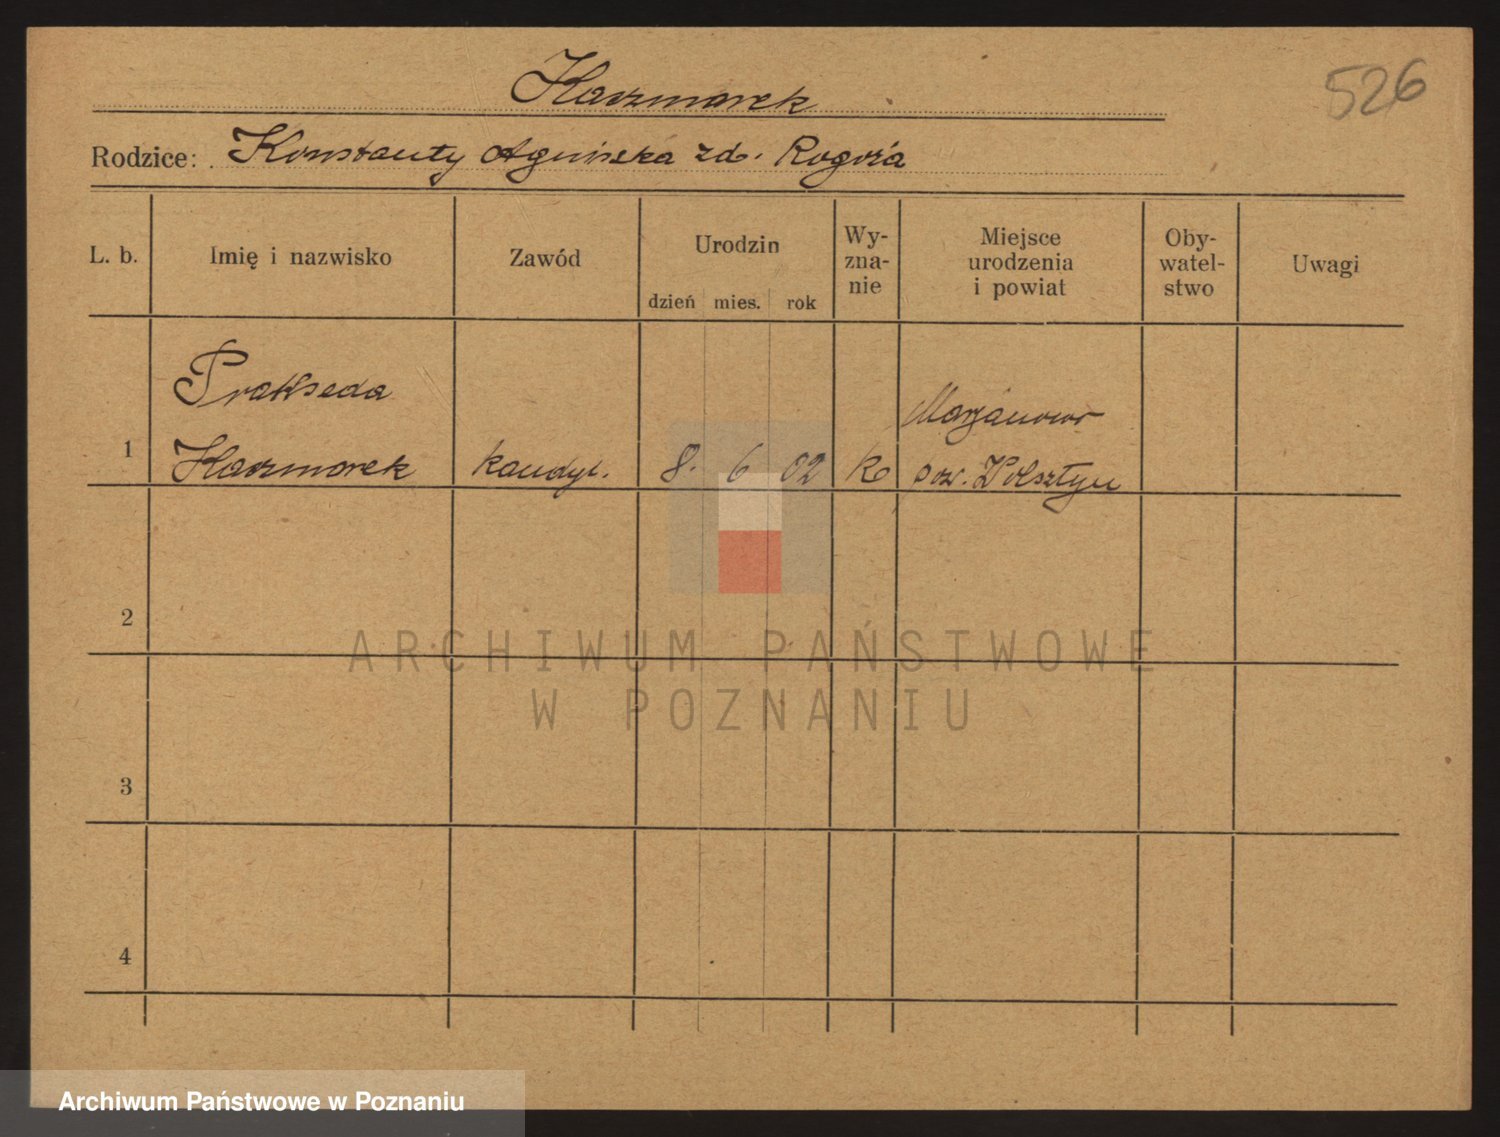 Kaczmarek
526
Rodzice: Konstanty Agnieszka zd. Rogoża
L. b.
Imię i nazwisko
Zawód
Urodzin
dzień mies. rok
Wy-
zna-
nie
Miejsce
urodzenia
i powiat
Oby-
watel-
stwo
Uwagi
1
Prakseda
Kaczmarek
8. 6 02
Marjanowo
pow. Wolsztyn
2
3
4
ARCHIWUM PAŃSTWOWE
W POZNANIU
Archiwum Państwowe w Poznaniu